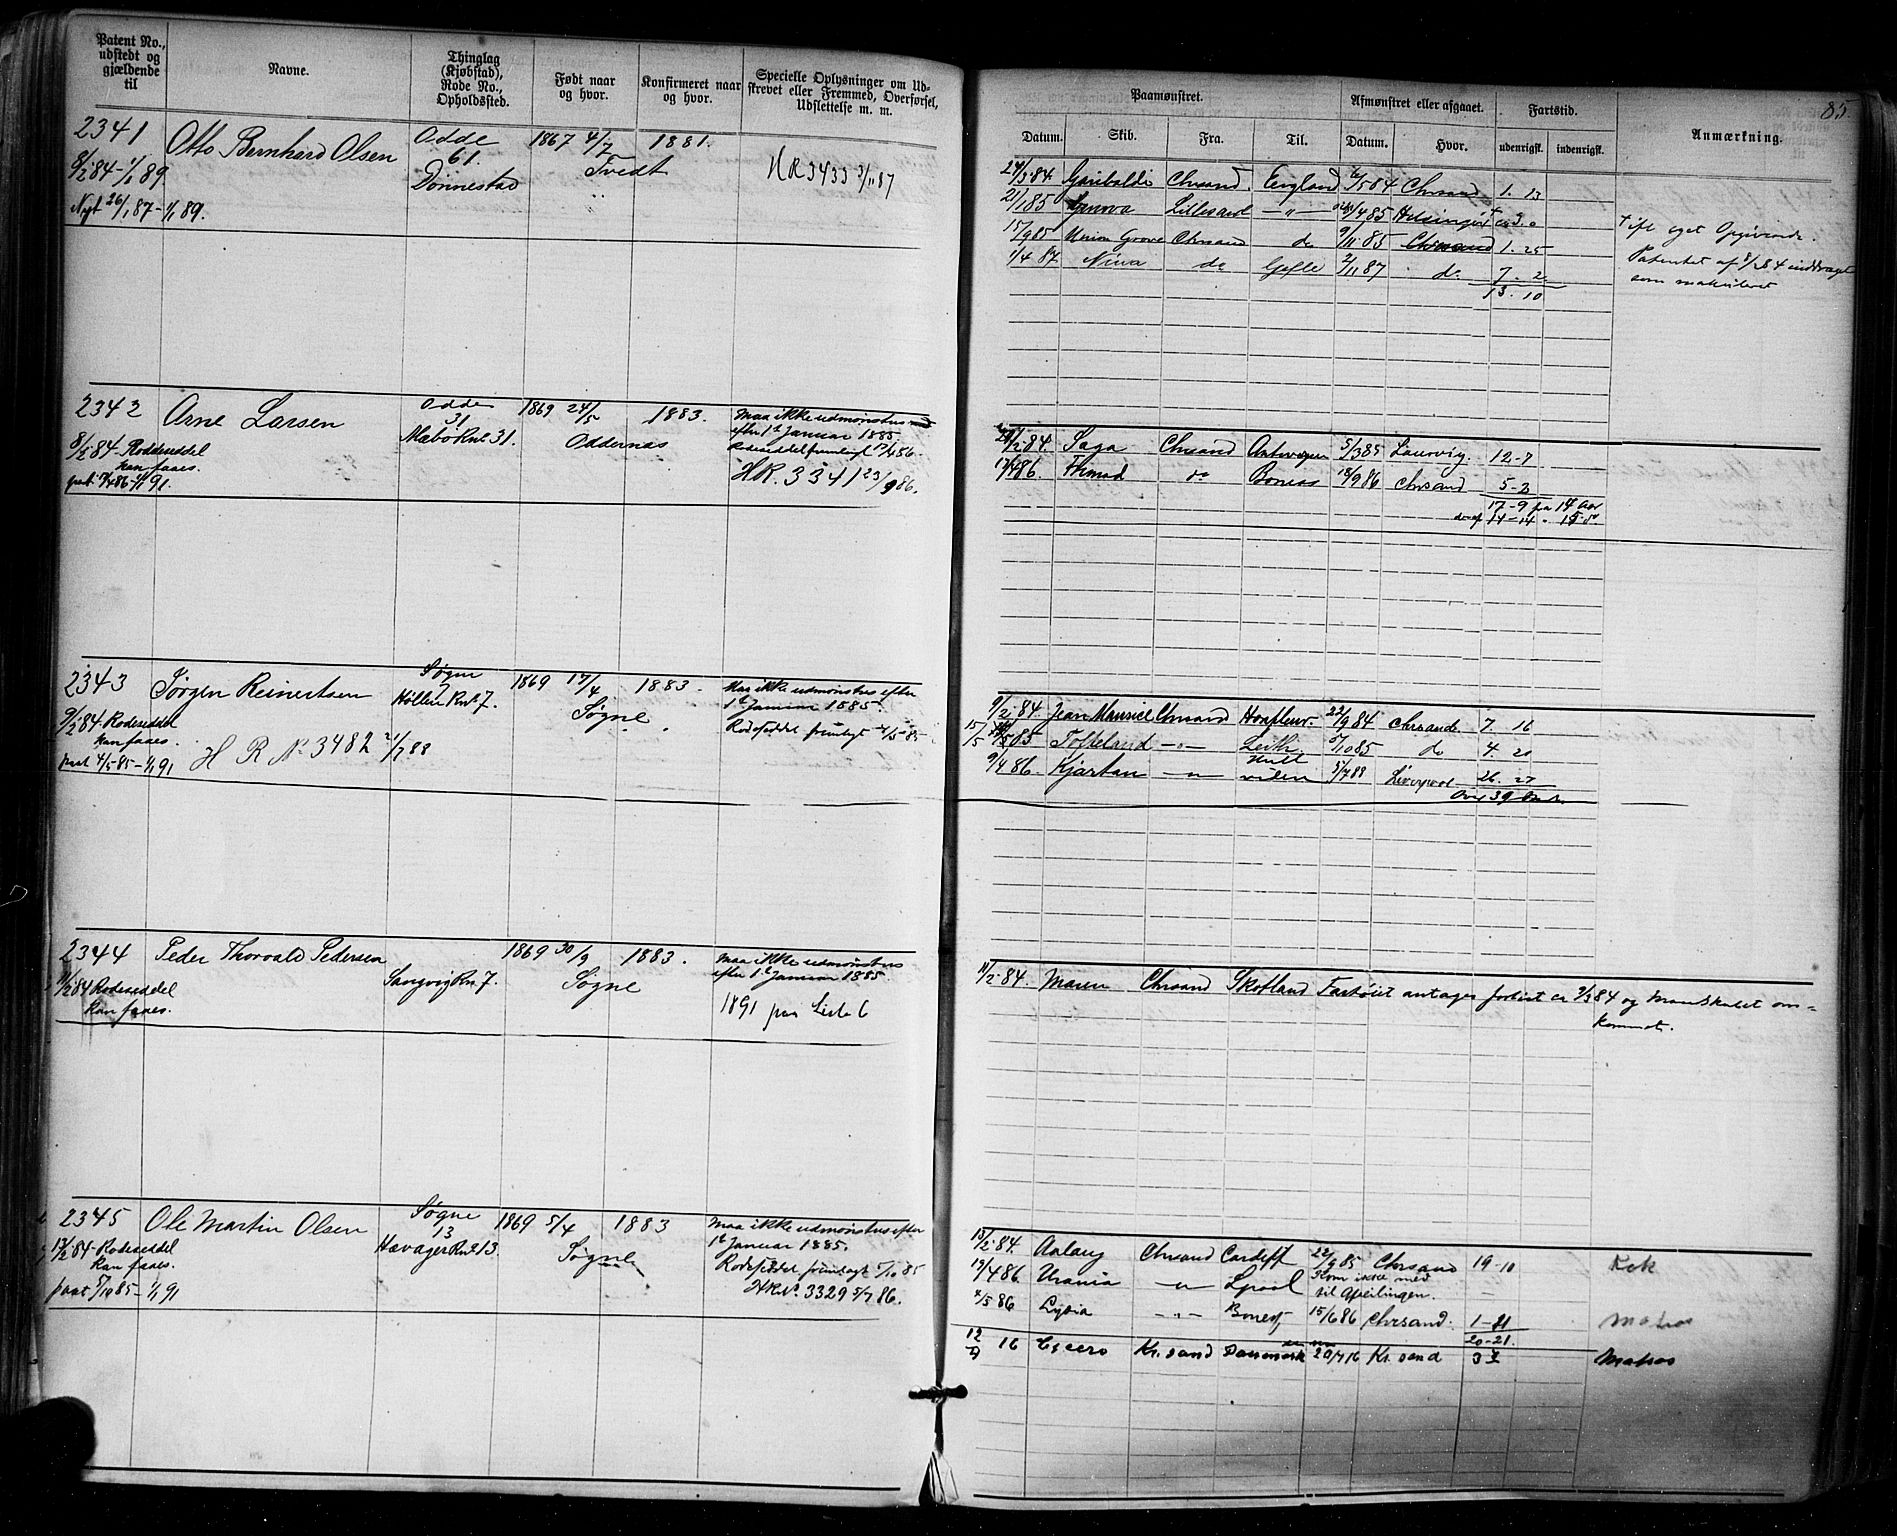 Patent No., udstedt og gjældende til
Navne.
Thinglag (Kjøbstad), Rode No., Opholdssted.
Født naar og hvor.
Konfirmeret naar og hvor.
Specielle Oplysninger om Udskrevet eller Fremmed, Overførsel, Udslettelse m. m.
2341 Otto Bernhard Olsen Odde 1867 4/7 1881.
8/2 84-1/1 89 61. Tvedt HR 3433 3/11 87
Nyt 26/1 87-1/1 89. Dønnestad
2342 Arne Larsen Odde 1869 24/5 1883. Maa ikke udmønstres
8/2 84-Rodeseddel 31 Oddernæs efter 1ste Januar 1885
kan faaes. Mæbø Rn. 31. Rodeseddel fremlagt 17/4 86.
pat. 17/4 86-1/1 91. HR. 3341 23/9 86.
2343 Jørgen Reinertsen Søgne 1869 17/4 1883. Maa ikke udmønstres efter
9/2 84-Rodeseddel 7 Søgne 1ste Januar 1885.
kan faaes. Høllen Rn. 7. Rodeseddel fremlagt 4/5 85
pat 4/5 85-1/1 91 H R No 3482 21/7 88
2344 Peder Thorvald Pedersen 1869 30/9 1883. Maa ikke udmønstres
11/2 84 Rodeseddel Sangvig Rn. 7. Søgne efter 1ste Januar 1885
kan faaes. 1891 paa Liste 6
2345 Ole Martin Olsen Søgne 1869 5/4 1883 Maa ikke udmønstres efter
13/2 84-Rodeseddel 13 Søgne 1ste Januar 1885.
kan faaes. Hævager Rn. 13. Rodeseddel fremlagt 5/10 85
pat 5/10 85-1/1 91 HR No. 3329 5/7 86.
85.
Paamønstret.
Afmønstret eller afgaaet.
Fartstid.
Anmærkning.
Datum. Skib. Fra. Til. Datum. Hvor. udenrigsk. indenrigsk.
27/3 84 Garibaldi Chrsand. England /5 84 Chrsand 1. 13
21/1 85 Genova Lillesand -"- /4 85 Helsingør + 3. 0
15/9 85 Union Grove Chrsand do 9/11 85 Chrsand 1. 25
1/4 87 Nina do Gefle 2/11 87 do 7. 2
13. 10
+ ifl. eget Opgivende.
Patentet af 8/2 84 inddraget
som makuleret
/2 84. Saga Chrsand Antwerpen 5/3 85 Laurvig. 12-7
17/4 86. Thrud do Boness 18/9 86 Chrsand 5-2
17-9 fra 14 Aar
do af 14-14 " 15 do
9/2 84 Jean Mauriel Chrsand Honfleur. 22/9 84 Chrsand. 7. 16
15/5 85 Tolkeland -"- Leith /10 85 do 4. 20
9/4 86. Kjartan -"- Hull viden 5/7 88 Liverpool 26. 27
Over 39
11/2 84. Maren Chrsand Skotland Fartøiet antages forlist ca 9/3 84 og Mandskabet om-
kommet.
13/2 84. Aslaug Chrsand Cardiff 22/9 85 Chrsand 19-10 Kok
19/4 86 Urania -"- Lpool Kom ikke med
til Afseilingen. -
4/5 86 Lydia -"- Boness 15/6 86 Chrsand. 1-11 Matros
20-21.
12/ 16 Cicero Kr. sand Danmark 20/7 16 Kr. sand 3 Matros